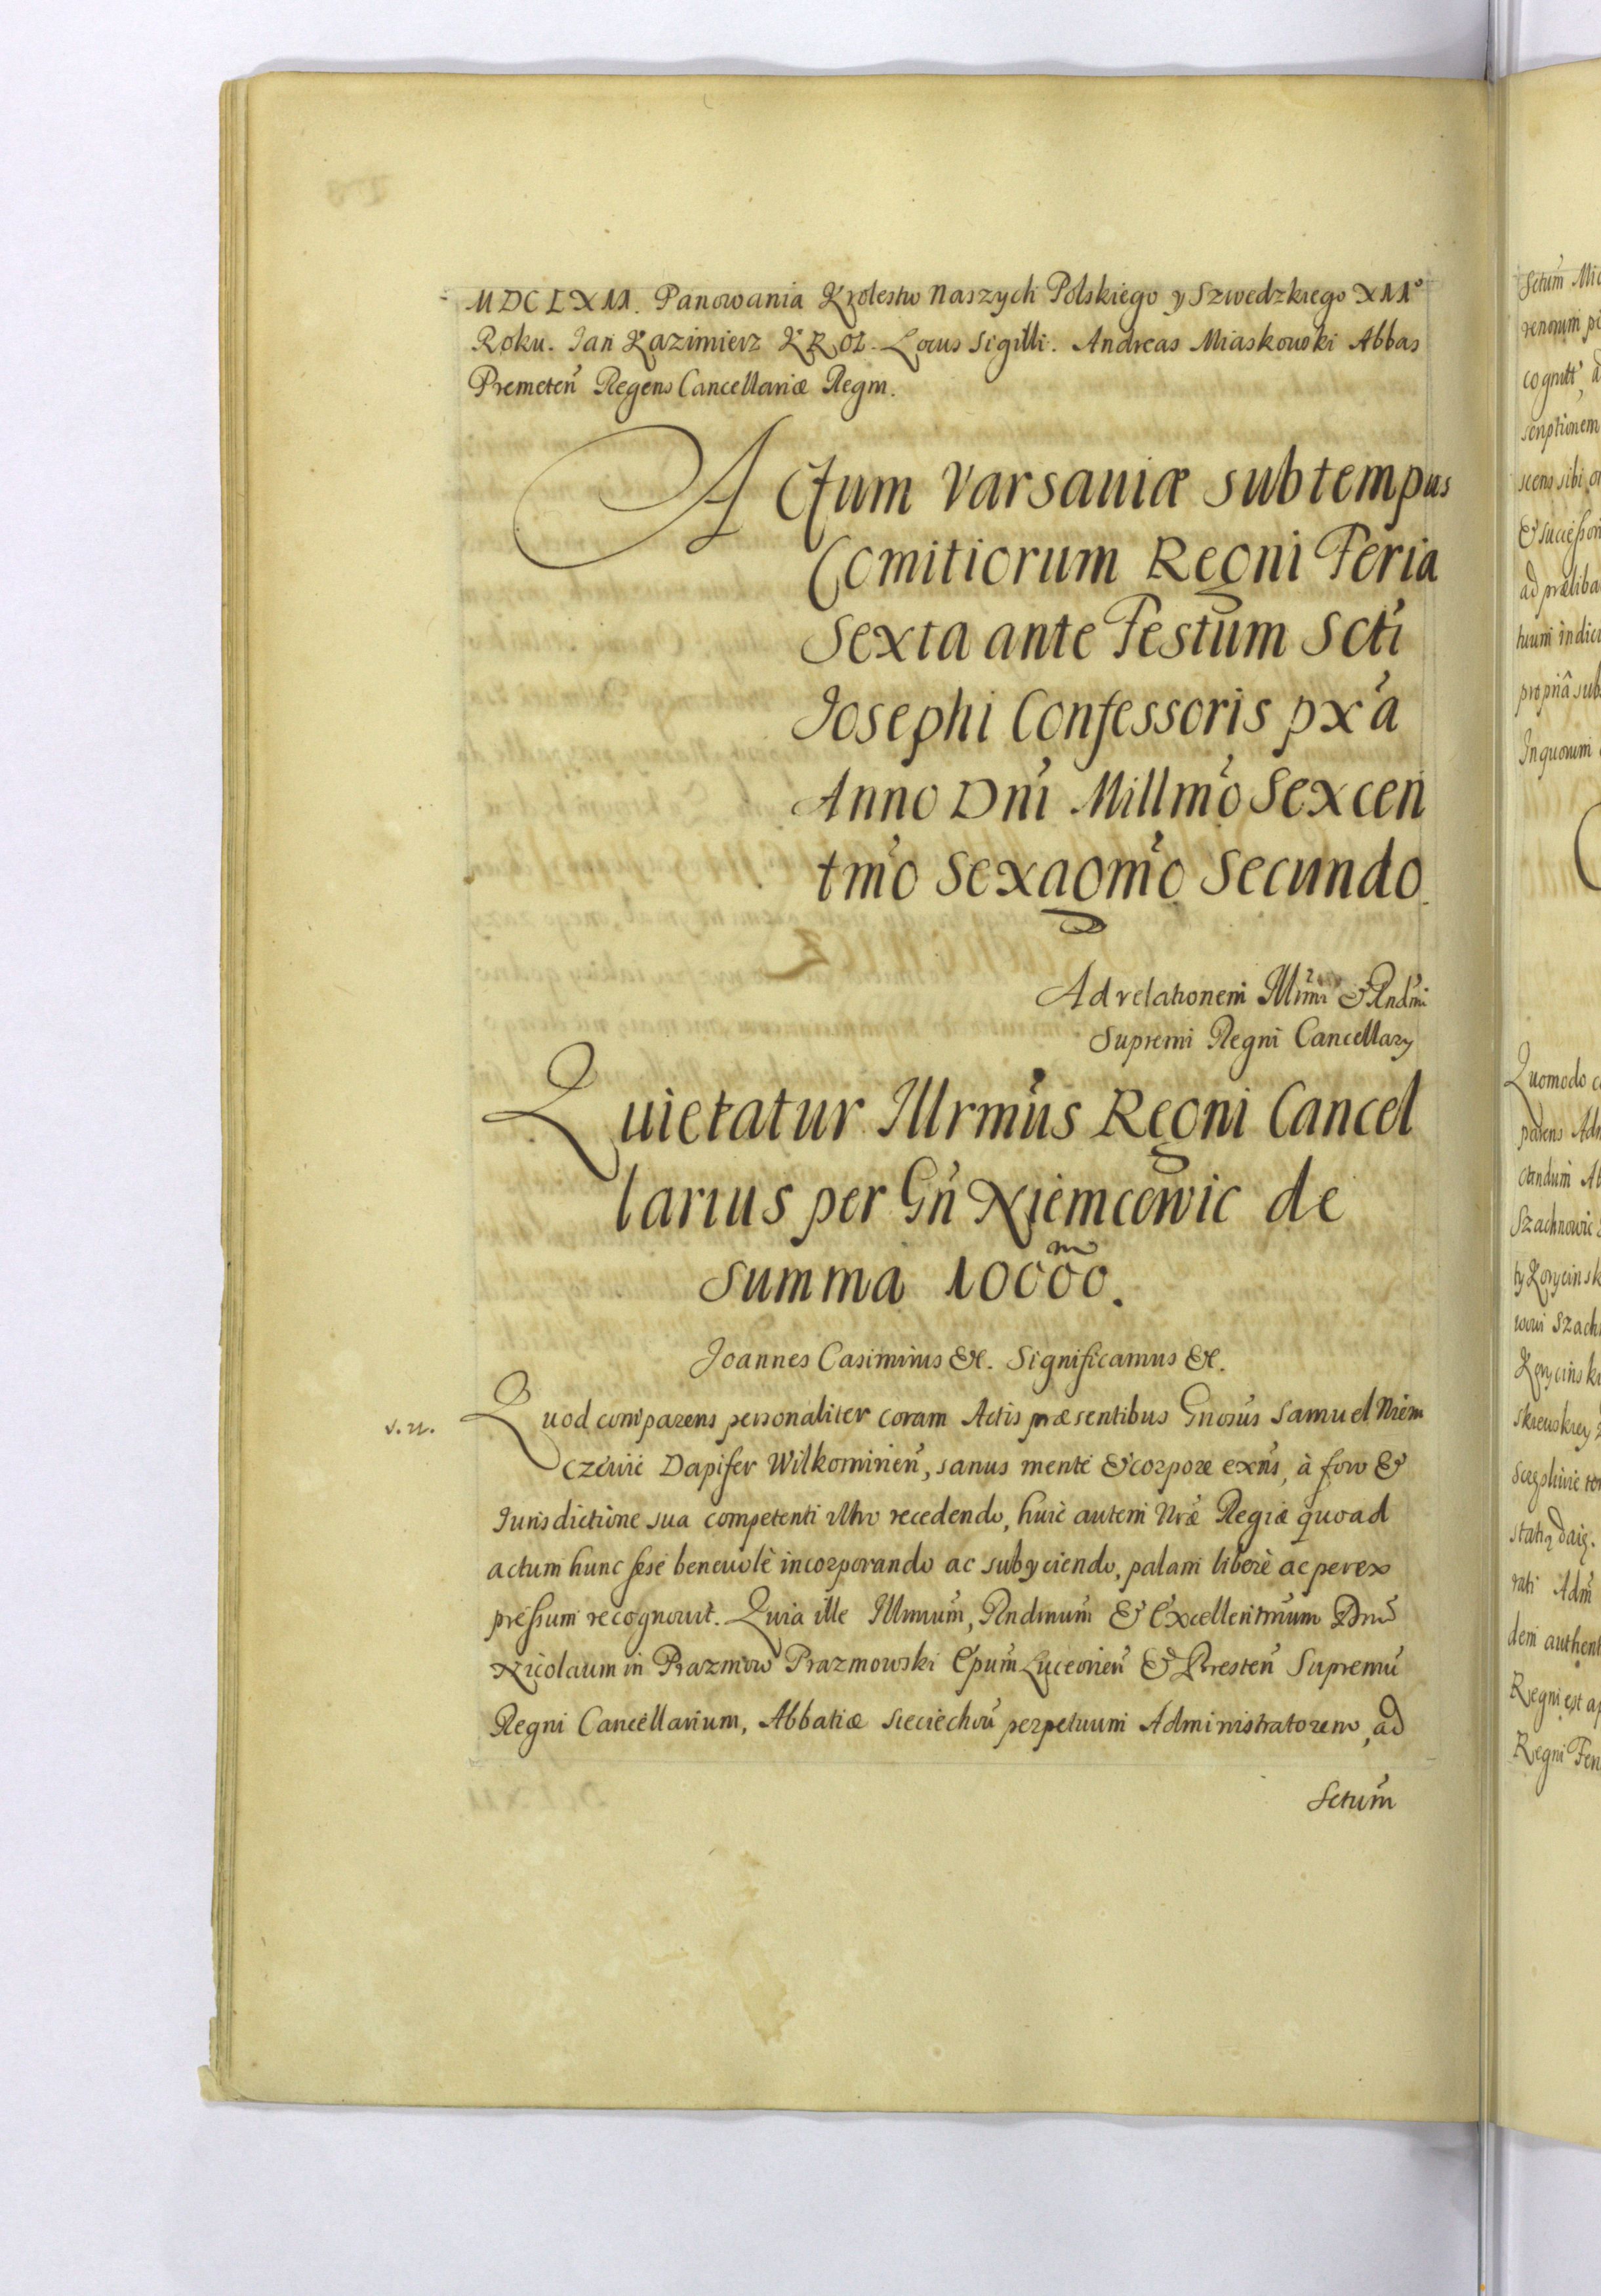 MDCLXII. Panowania Krolestw Naszych Polskiego y Szwedzkiego XIIII°
Roku. Jan Kazimierz KROL. Locus Sigilli. Andreas Miaskowski Abbas
Premeten̄ Regens Cancellariæ Regni.
Actum Varsauiæ sub tempus
Comitiorum Regni Feria
Sexta ante Festum Scti
Josephi Confessoris pxa
Anno Dni Millmo Sexcen
tmo Sexagmo Secundo.
Ad relationem Illmi & Rndmi
Supremi Regni Cancellary
Quietatur Illrmus Regni Cancel
larius per Gn Niemcewic de
summa 10000.
m
Joannes Casimirus &c. Significamus &c.
v. n.
Quod comparens personaliter coram Actis præsentibus Gnosus Samuel Niem
czewic Dapifer Wilkomirien̄, sanus mente & corpore exns, à foro &
Jurisdictione sua competenti recedendo, huic autem Nræ Regiæ quoad
actum hunc sese beneuolè incorporando ac subyciendo, palam liberè ac per ex
pressum recognouit. Quia ille Illmum, Rndmum & Excellentmum Dnum
Nicolaum in Prazmow Prazmowski Epum Luceorien̄ & Bresten̄ Supremu
Regni Cancellarium, Abbatiæ Sieciechou perpetuum Administratorem, ad
Sctum
Sctum
cognitt,
scriptionem
scens sibi
& successori
propriâ
In quorum
Quomodo
Szachnowic
Regni est
Regni